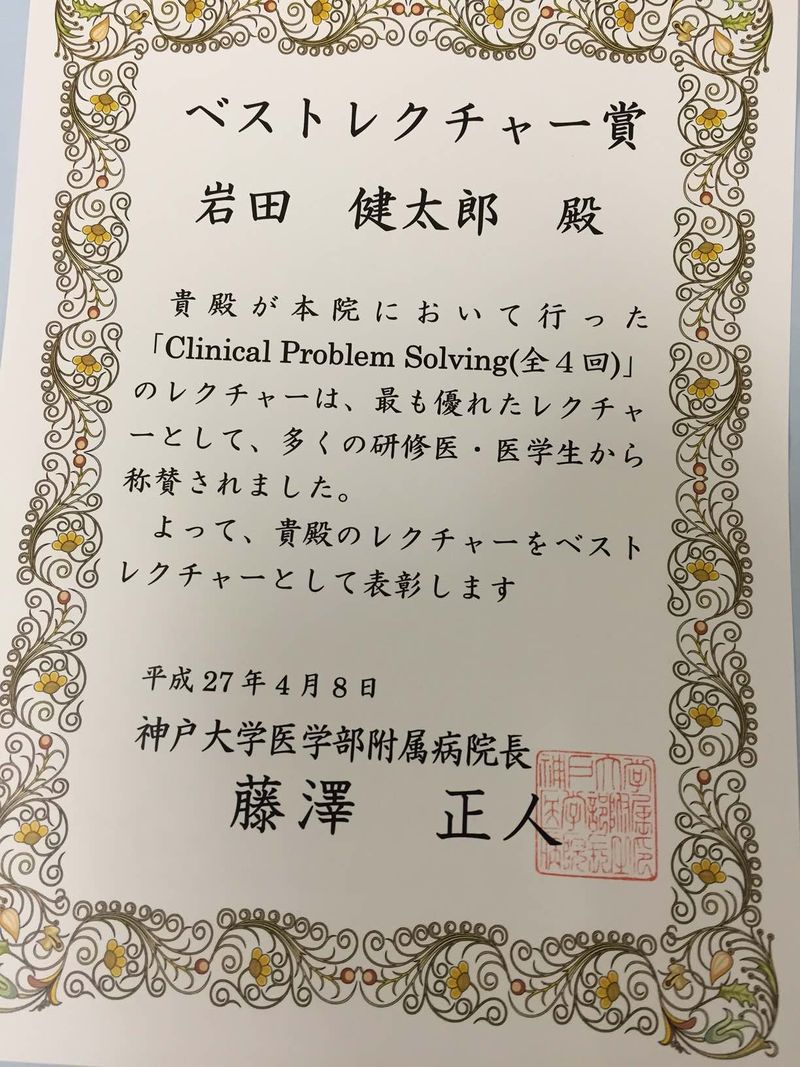 ベストレクチャー賞
岩田 健太郎 殿
貴殿が本院において行った
「Clinical Problem Solving(全4回)」
のレクチャーは、最も優れたレクチャ
ーとして、多くの研修医・医学生から
称賛されました。
よって、貴殿のレクチャーをベスト
レクチャーとして表彰します
平成27年4月8日
神戸大学医学部附属病院長
藤澤 正人
神戸大学
医学部附属
病院長之印